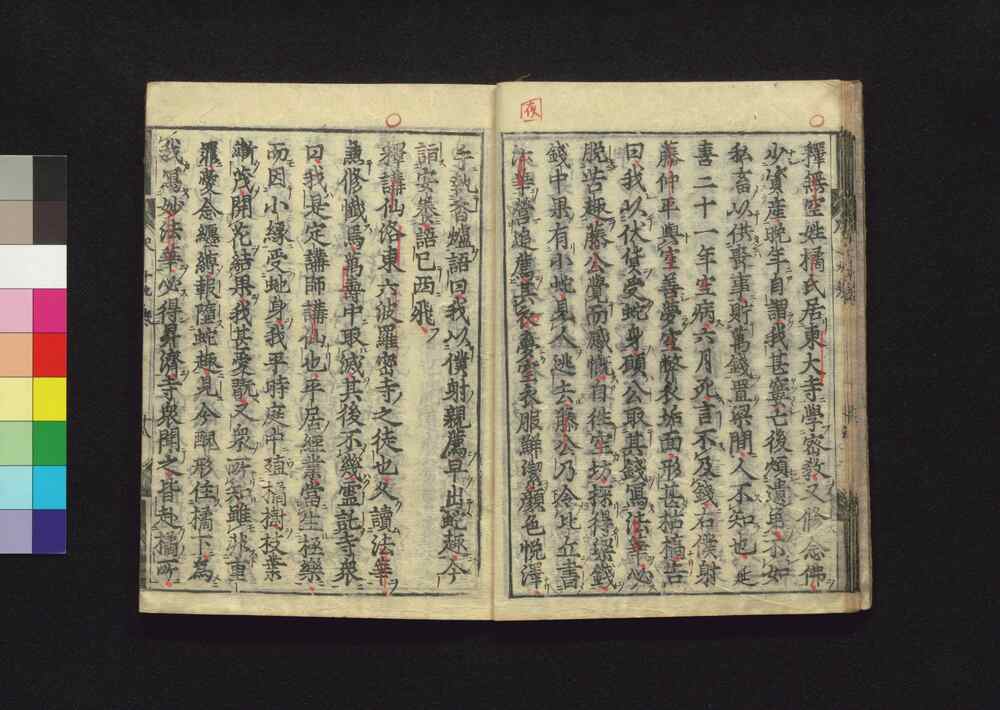 夜
釋無空姓橘氏居東大寺學密教又修念佛
少資産晩年自謂我甚寠亡後煩遺弟不如
私畜以供喪事貯萬錢置梁間人不知也延
喜二十一年生病六月死言不及錢右僕射
藤仲平與空善夢空弊衣垢面形甚枯槁告
曰我以伏貨受蛇身願公取其錢寫法華必
脱苦趣藤公覺而感慨自往空坊探得梁錢
錢中果有小蛇見人逃去藤公乃令比丘書
法華營追薦其衣夢空衣服鮮潔顔色悦澤
手執香爐語曰我以僕射親薦早出蛇趣今
詣安養語已西飛
釋講仙洛東六波羅密寺之徒也久讀法華
兼修懺焉萬壽中取滅其後不幾靈託寺衆
曰我是定講師講仙也平居經業當生極樂
而因小縁受蛇身我平時庭中植橘樹枝葉
漸茂開花結果我甚愛翫又衆所知雖非重
罪愛念纏縛報墮蛇趣見今配形住橘下爲
我寫妙法華必得昇濟寺衆聞之皆赴橘所